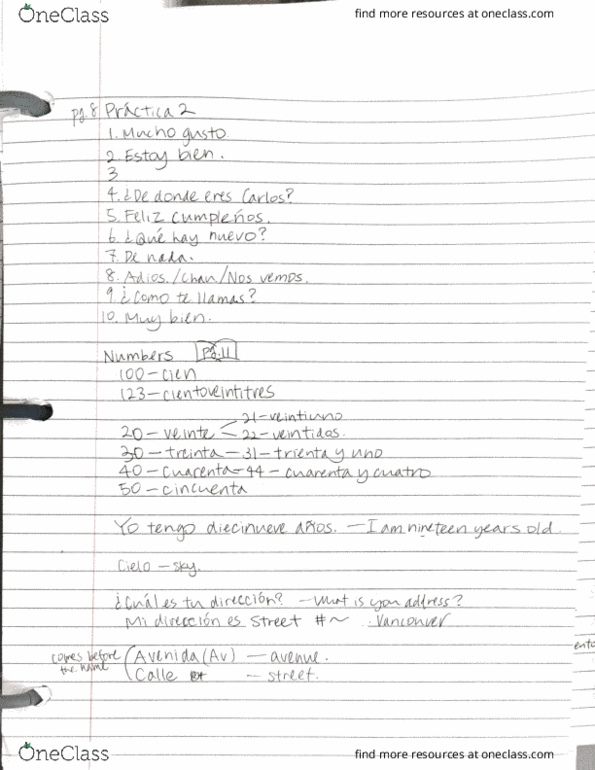 OneClass
find more resources at oneclass.com
pg.8 Práctica 2
1. Mucho gusto
2. Estoy bien.
3
4. ¿De donde eres Carlos?
5. Feliz cumpleños.
6. ¿Qué hay nuevo?
7. De nada.
8. Adios./Chau/Nos vemos.
9. ¿Como te llamas?
10. Muy bien.
Numbers pg.11
100 – cien
123 – cientoveintitres
21 – veintiuno
20 – veinte 22 – veintidos.
30 – treinta – 31 – trienta y uno
40 – cuarenta – 44 – cuarenta y cuatro
50 – cincuenta
Yo tengo diecinueve años. – I am nineteen years old.
Cielo – sky.
¿Cuál es tu dirección? – What is your address?
Mi dirección es Street #~ Vancouver
comes before the name (Avenida (Av) – avenue.
Calle – street.
OneClass
find more resources at oneclass.com